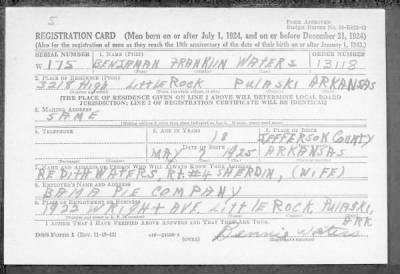 5
FORM APPROVED
REGISTRATION CARD (Men born on or after July 1, 1924, and on or before December 31, 1924)
(Also for the registration of men as they reach the 18th anniversary of the date of their birth on or after January 1, 1943.)
SERIAL NUMBER 1. NAME (Print) ORDER NUMBER
W 175 BENJAMAN FRANKLIN WATERS 13118
2. PLACE OF RESIDENCE (Print)
3218 High LITTLE ROCK PULASKI ARKANSAS
[THE PLACE OF RESIDENCE GIVEN ON LINE 2 ABOVE WILL DETERMINE LOCAL BOARD
JURISDICTION; LINE 2 OF REGISTRATION CERTIFICATE WILL BE IDENTICAL]
3. MAILING ADDRESS
SAME
4. TELEPHONE 5. AGE IN YEARS 6. PLACE OF BIRTH
18 JEFFERSON COUNTY
MAY 1925 ARKANSAS
7. NAME AND ADDRESS OF PERSON WHO WILL ALWAYS KNOW YOUR ADDRESS
REDITH WATERS, Rt. #4 SHERDIN, (WIFE)
8. EMPLOYER'S NAME AND ADDRESS
BAMA PIE COMPANY
9. PLACE OF EMPLOYMENT OR BUSINESS
1922 WRIGHT AVE LITTLE ROCK, PULASKI, ARK
I AFFIRM THAT I HAVE VERIFIED ABOVE ANSWERS AND THAT THEY ARE TRUE.
DSS Form 1 (OVER) Bennie Waters